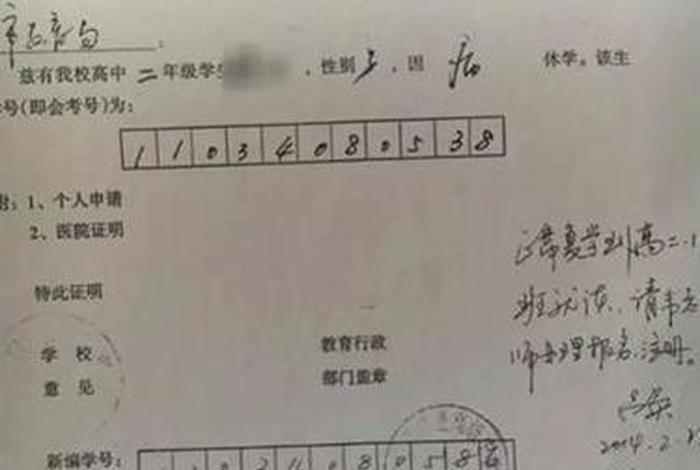 市教育局:
兹有我校高中二年级学生,性别 ,因病休学。该生
号(即会考号)为:
11034080538
附:1、个人申请
2、医院证明
特此证明
学校
意见
教育行政
部门盖章
复学到高二.1
班就读,请韦老
师办理报名.注册。
2014.2.
新编学号: